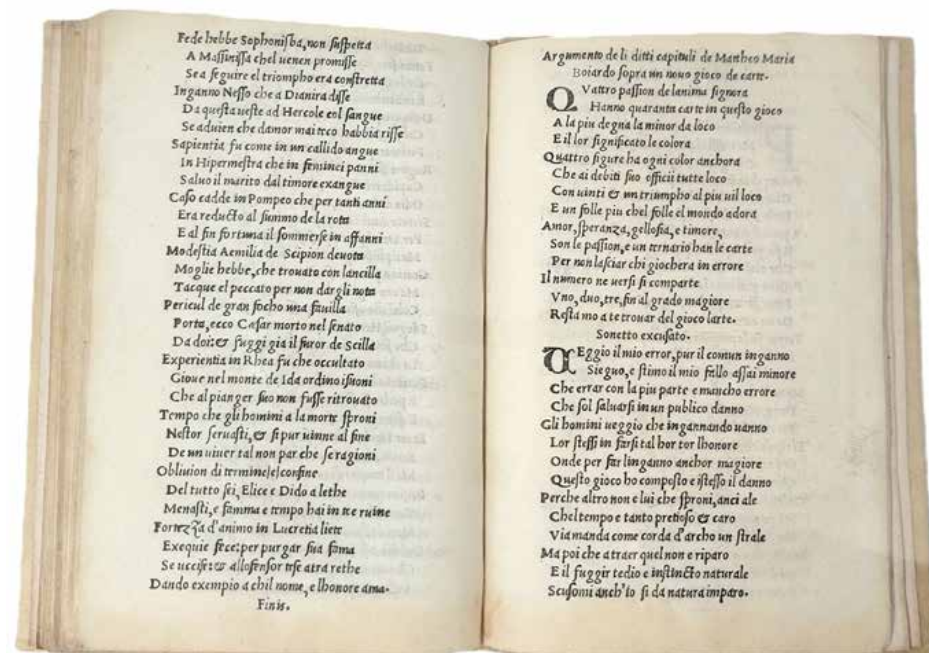 Fede hebbe Sophonisba, non suspetta
A Massinissa chel uenen promisse
Se a seguire el triompho era constretta
Inganno Nesso che a Dianira disse
Da questa ueste ad Hercole col sangue
Se aduien che damor mai teco habbia risse
Sapientia fu come in un callido angue
In Hipermestra che in feminei panni
Saluo il marito dal timore exangue
Caso cadde in Pompeo che per tanti anni
Era reducto al summo de la rota
E al fin fortuna il sommerse in affanni
Modestia Aemilia de Scipion deuota
Moglie hebbe, che trouato con lancilla
Tacque el peccato per non dargli nota
Pericul de gran focho una fauilla
Porta, ecco Cæsar morto nel senato
Da doi: & fuggi gia il furor de Scilla
Experientia in Rhea fu che occultato
Gioue nel monte de Ida ordino i suoni
Che al pianger suo non fusse ritrouato
Tempo che gli homini a la morte sproni
Nestor seruasti, & si pur uinne al fine
De un uiuer tal non par che se ragioni
Obliuion di termine|e|confine
Del tutto sei, Elice e Dido a lethe
Menasti, e famma e tempo hai in tue ruine
Fortezza d'animo in Lucretia liete
Exequie fece: per purgar sua fama
Se uccise: & allofensor tese atra rethe
Dando exempio a chil nome, e lhonore ama.
Finis.
Argumento de li ditti capituli de Mattheo Maria
Boiardo sopra un nouo gioco de carte.
QVattro passion de lanima signora
Hanno quaranta carte in questo gioco
A la piu degna la minor da loco
E il lor significato le colora
Quattro figure ha ogni color anchora
Che ai debiti suo officii tutte loco
Con uinti & un triumpho al piu uil loco
E un folle piu chel folle el mondo adora
Amor, speranza, gellosia, e timore,
Son le passion, e un ternario han le carte
Per non lasciar chi giochera in errore
Il numero ne uersi si comparte
Vno, duo, tre, fin al grado magiore
Resta mo a te trouar del gioco larte.
Sonetto excusato.
VEggio il mio error, pur il comun inganno
Sieguo, e stimo il mio fallo assai minore
Che errar con la piu parte e mancho errore
Che sol saluarsi in un publico danno
Gli homini ueggio che ingannando uanno
Lor stessi in farsi tal hor tor lhonore
Onde per far linganno anchor magiore
Questo gioco ho composto e istesso il danno
Perche altro non e lui che sproni, anci ale
Chel tempo e tanto pretioso & caro
Via manda come corda d'archo un strale
Ma poi che atraer quel non e riparo
E il fuggir tedio e instincto naturale
Scusomi anch'io si da natura imparo.